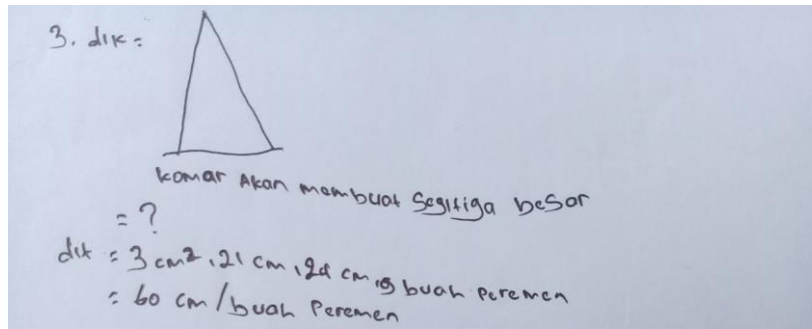 3. dik =
Komar Akan membuat Segitiga besar
= ?
dit = 3 cm², 21 cm, 24 cm, buah Peremen
= 60 cm / buah Peremen